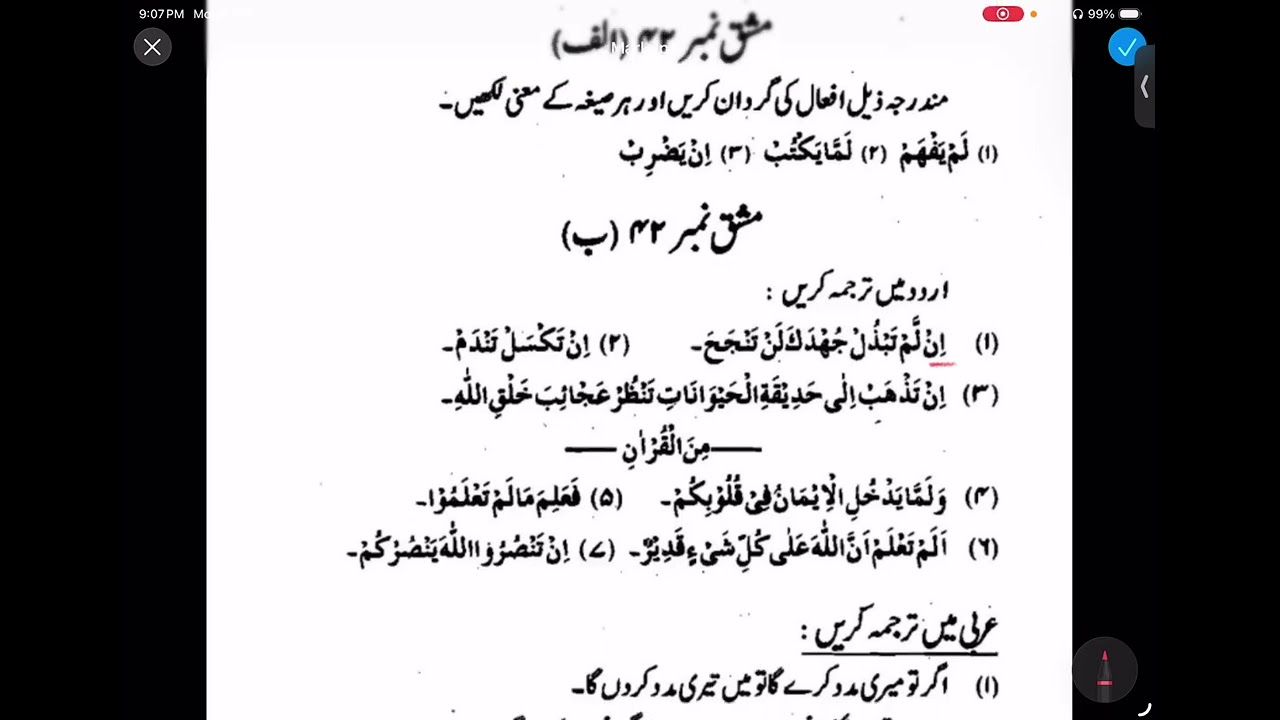 9:07 PM
99%
مشق نمبر ۴۲ (الف)
مندرجہ ذیل افعال کی گردان کریں اور ہر صیغہ کے معنی لکھیں۔
(۱) لَمْ يَفْهَمْ (۲) لَمَّا يَكْتُبْ (۳) اِنْ يَضْرِبْ
مشق نمبر ۴۲ (ب)
اردو میں ترجمہ کریں :
(۱) اِنْ لَّمْ تَبْذُلْ جُهْدَكَ لَنْ تَنْجَحَ۔ (۲) اِنْ تَكْسَلْ تَنْدَمْ۔
(۳) اِنْ تَذْهَبْ اِلٰى حَدِيْقَةِ الْحَيَوَانَاتِ تَنْظُرْ عَجَائِبَ خَلْقِ اللّٰهِ۔
مِنَ الْقُرْاٰنِ
(۴) وَلَمَّا يَدْخُلِ الْاِيْمَانُ فِىْ قُلُوْبِكُمْ۔ (۵) فَعَلِمَ مَا لَمْ تَعْلَمُوْا۔
(۶) اَلَمْ تَعْلَمْ اَنَّ اللّٰهَ عَلٰى كُلِّ شَىْءٍ قَدِيْرٌ۔ (۷) اِنْ تَنْصُرُوا اللّٰهَ يَنْصُرْكُمْ۔
عربی میں ترجمہ کریں :
(۱) اگر تو میری مدد کرے گا تو میں تیری مدد کروں گا۔